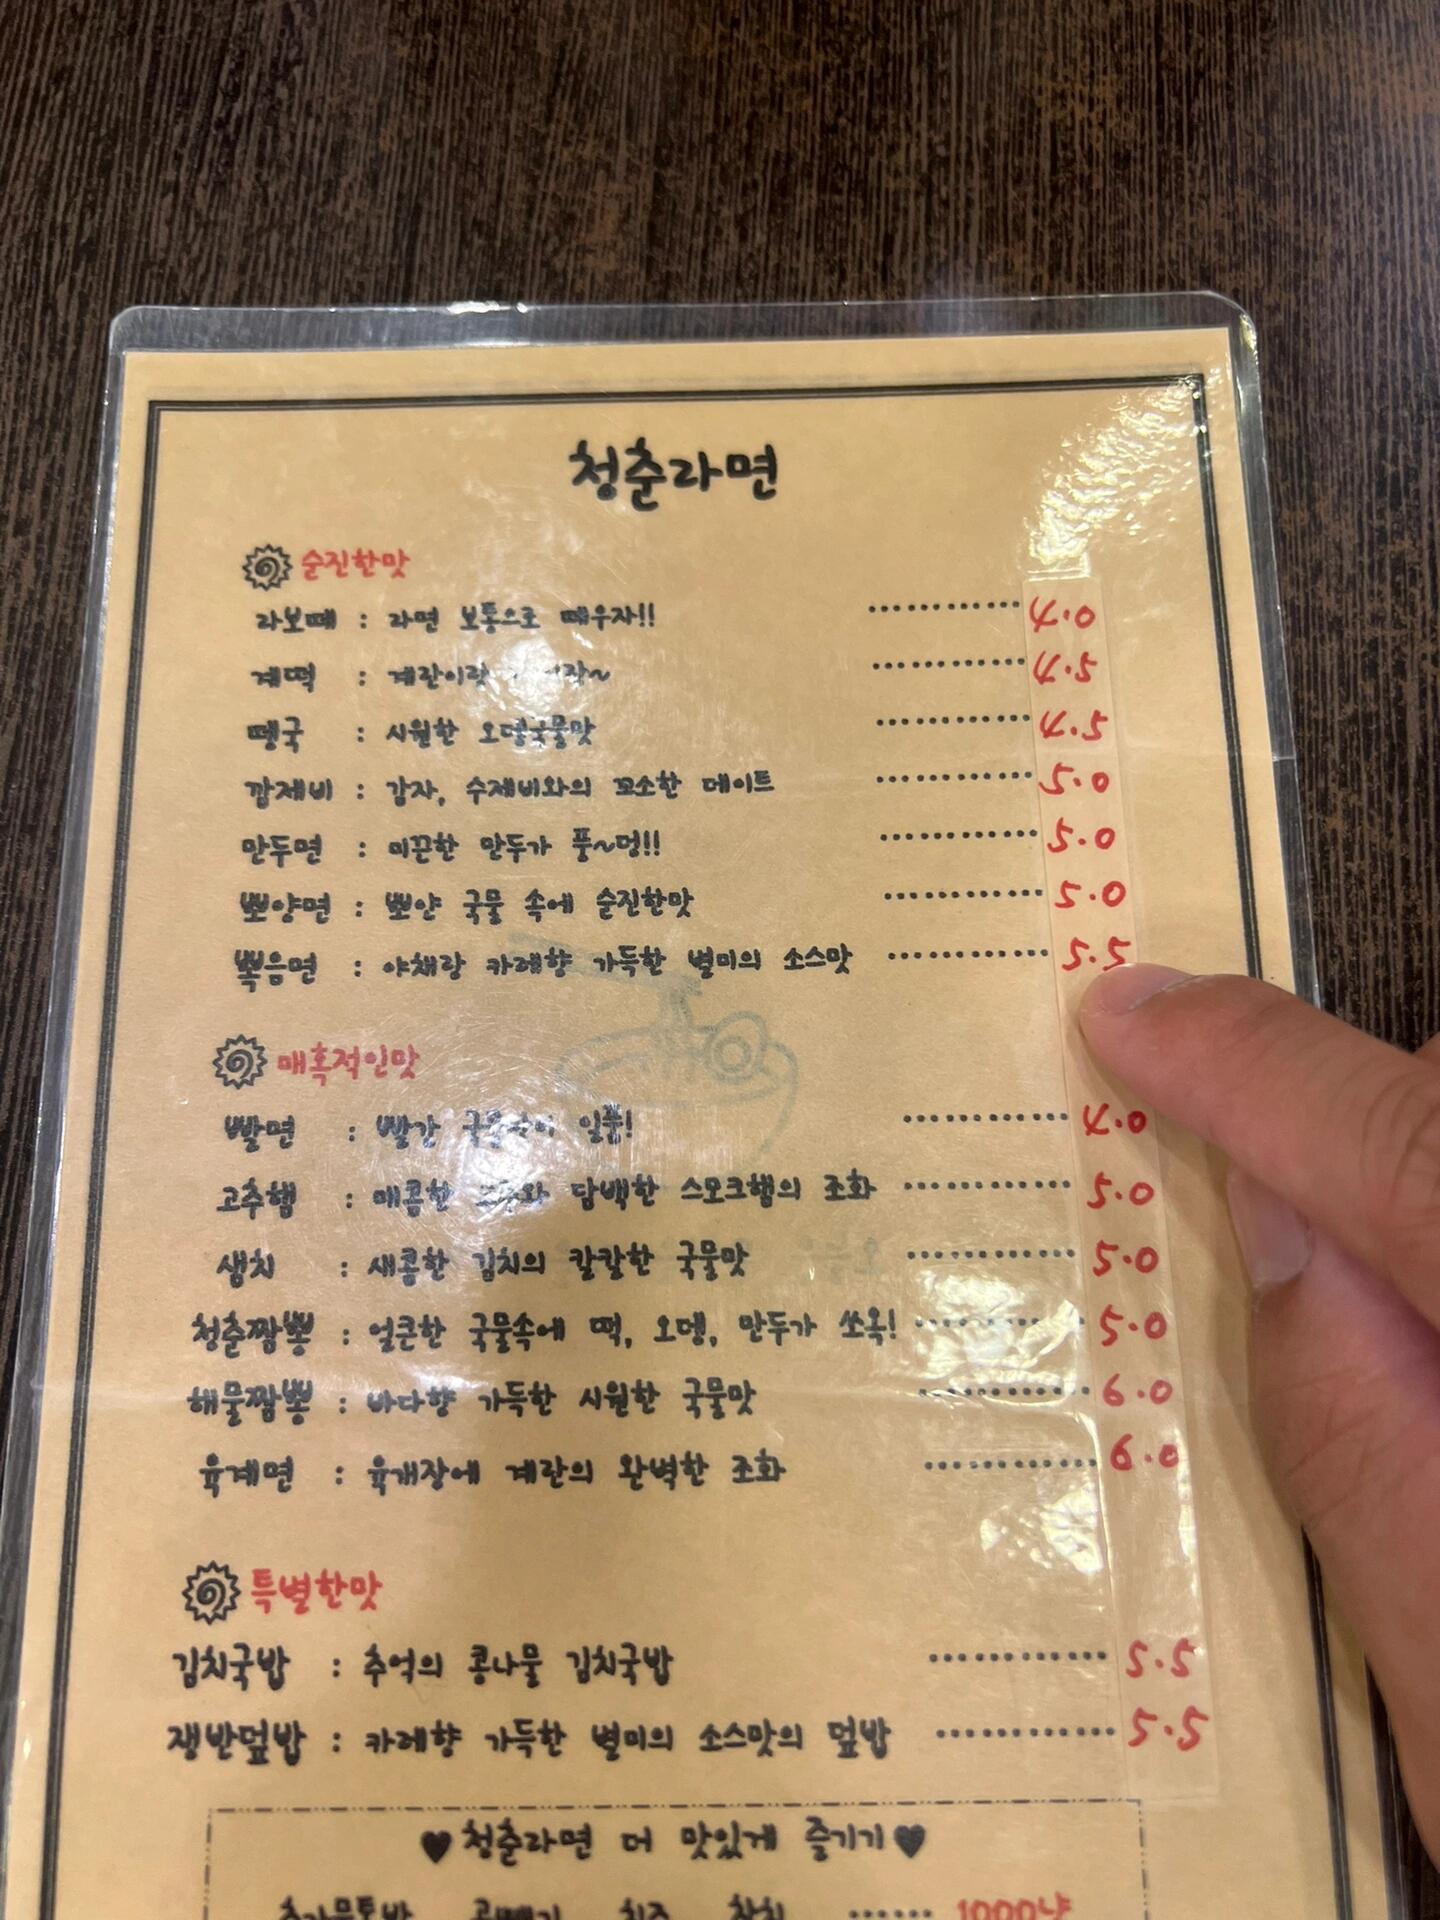 청춘라면
순진한맛
라보때 : 라면 보통으로 때우자!! ............ 4.0
계떡 : 계란이랑 ............ 4.5
뗑국 : 시원한 오뎅국물맛 ............ 4.5
깜제비 : 감자, 수제비와의 꼬소한 데이트 ............ 5.0
만두면 : 미끈한 만두가 풍~덩!! ............ 5.0
뽀양면 : 뽀얀 국물 속에 순진한맛 ............ 5.0
뽁음면 : 야채랑 카레향 가득한 별미의 소스맛 ............ 5.5
매혹적인맛
빨면 : 빨간 국물속이 일품! ............ 4.0
고추햄 : 매콤한 고추와 담백한 스모크햄의 조화 ............ 5.0
샘치 : 새콤한 김치의 칼칼한 국물맛 ............ 5.0
청춘짬뽕 : 얼큰한 국물속에 떡, 오뎅, 만두가 쏘옥! ............ 5.0
해물짬뽕 : 바다향 가득한 시원한 국물맛 ............ 6.0
육계면 : 육개장에 계란의 완벽한 조화 ............ 6.0
특별한맛
김치국밥 : 추억의 콩나물 김치국밥 ............ 5.5
쟁반덮밥 : 카레향 가득한 별미의 소스맛의 덮밥 ............ 5.5
♥청춘라면 더 맛있게 즐기기♥
치즈 참치 ...... 1000냥